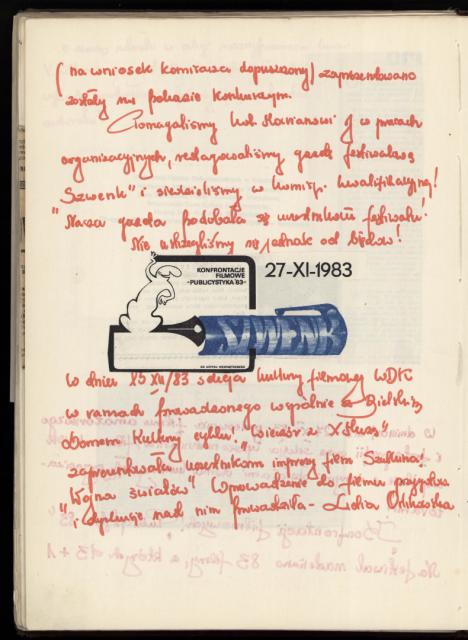 (na wniosek komisarza dopuszczony) zaprezentowano
zostały na pokazie konkursowym.
Pomagaliśmy kol. Marianowi G w pracach
organizacyjnych, redagowaliśmy gazetę festiwalową
"Szwenk" i siedzieliśmy w komisji kwalifikacyjnej!
"Nasza gazeta podobała się uczestnikom festiwalu!
Nie ustrzegliśmy się jednak od błędów!
KONFRONTACJE
FILMOWE
"PUBLICYSTYKA '83"
27-XI-1983
SZWENK
DO UŻYTKU WEWNĘTRZNEGO
W dniu 15 XII/83 sekcja kultury filmowej WDK
w ramach prowadzonego wspólnie z Bielskim
Domem Kultury cyklu: "Wieczór z X Muzą"
zaprezentowała uczestnikom imprezy film Szulkina:
"Wojna światów" Wprowadzenie do filmu
i dyskusję nad nim prowadziła - Lidia